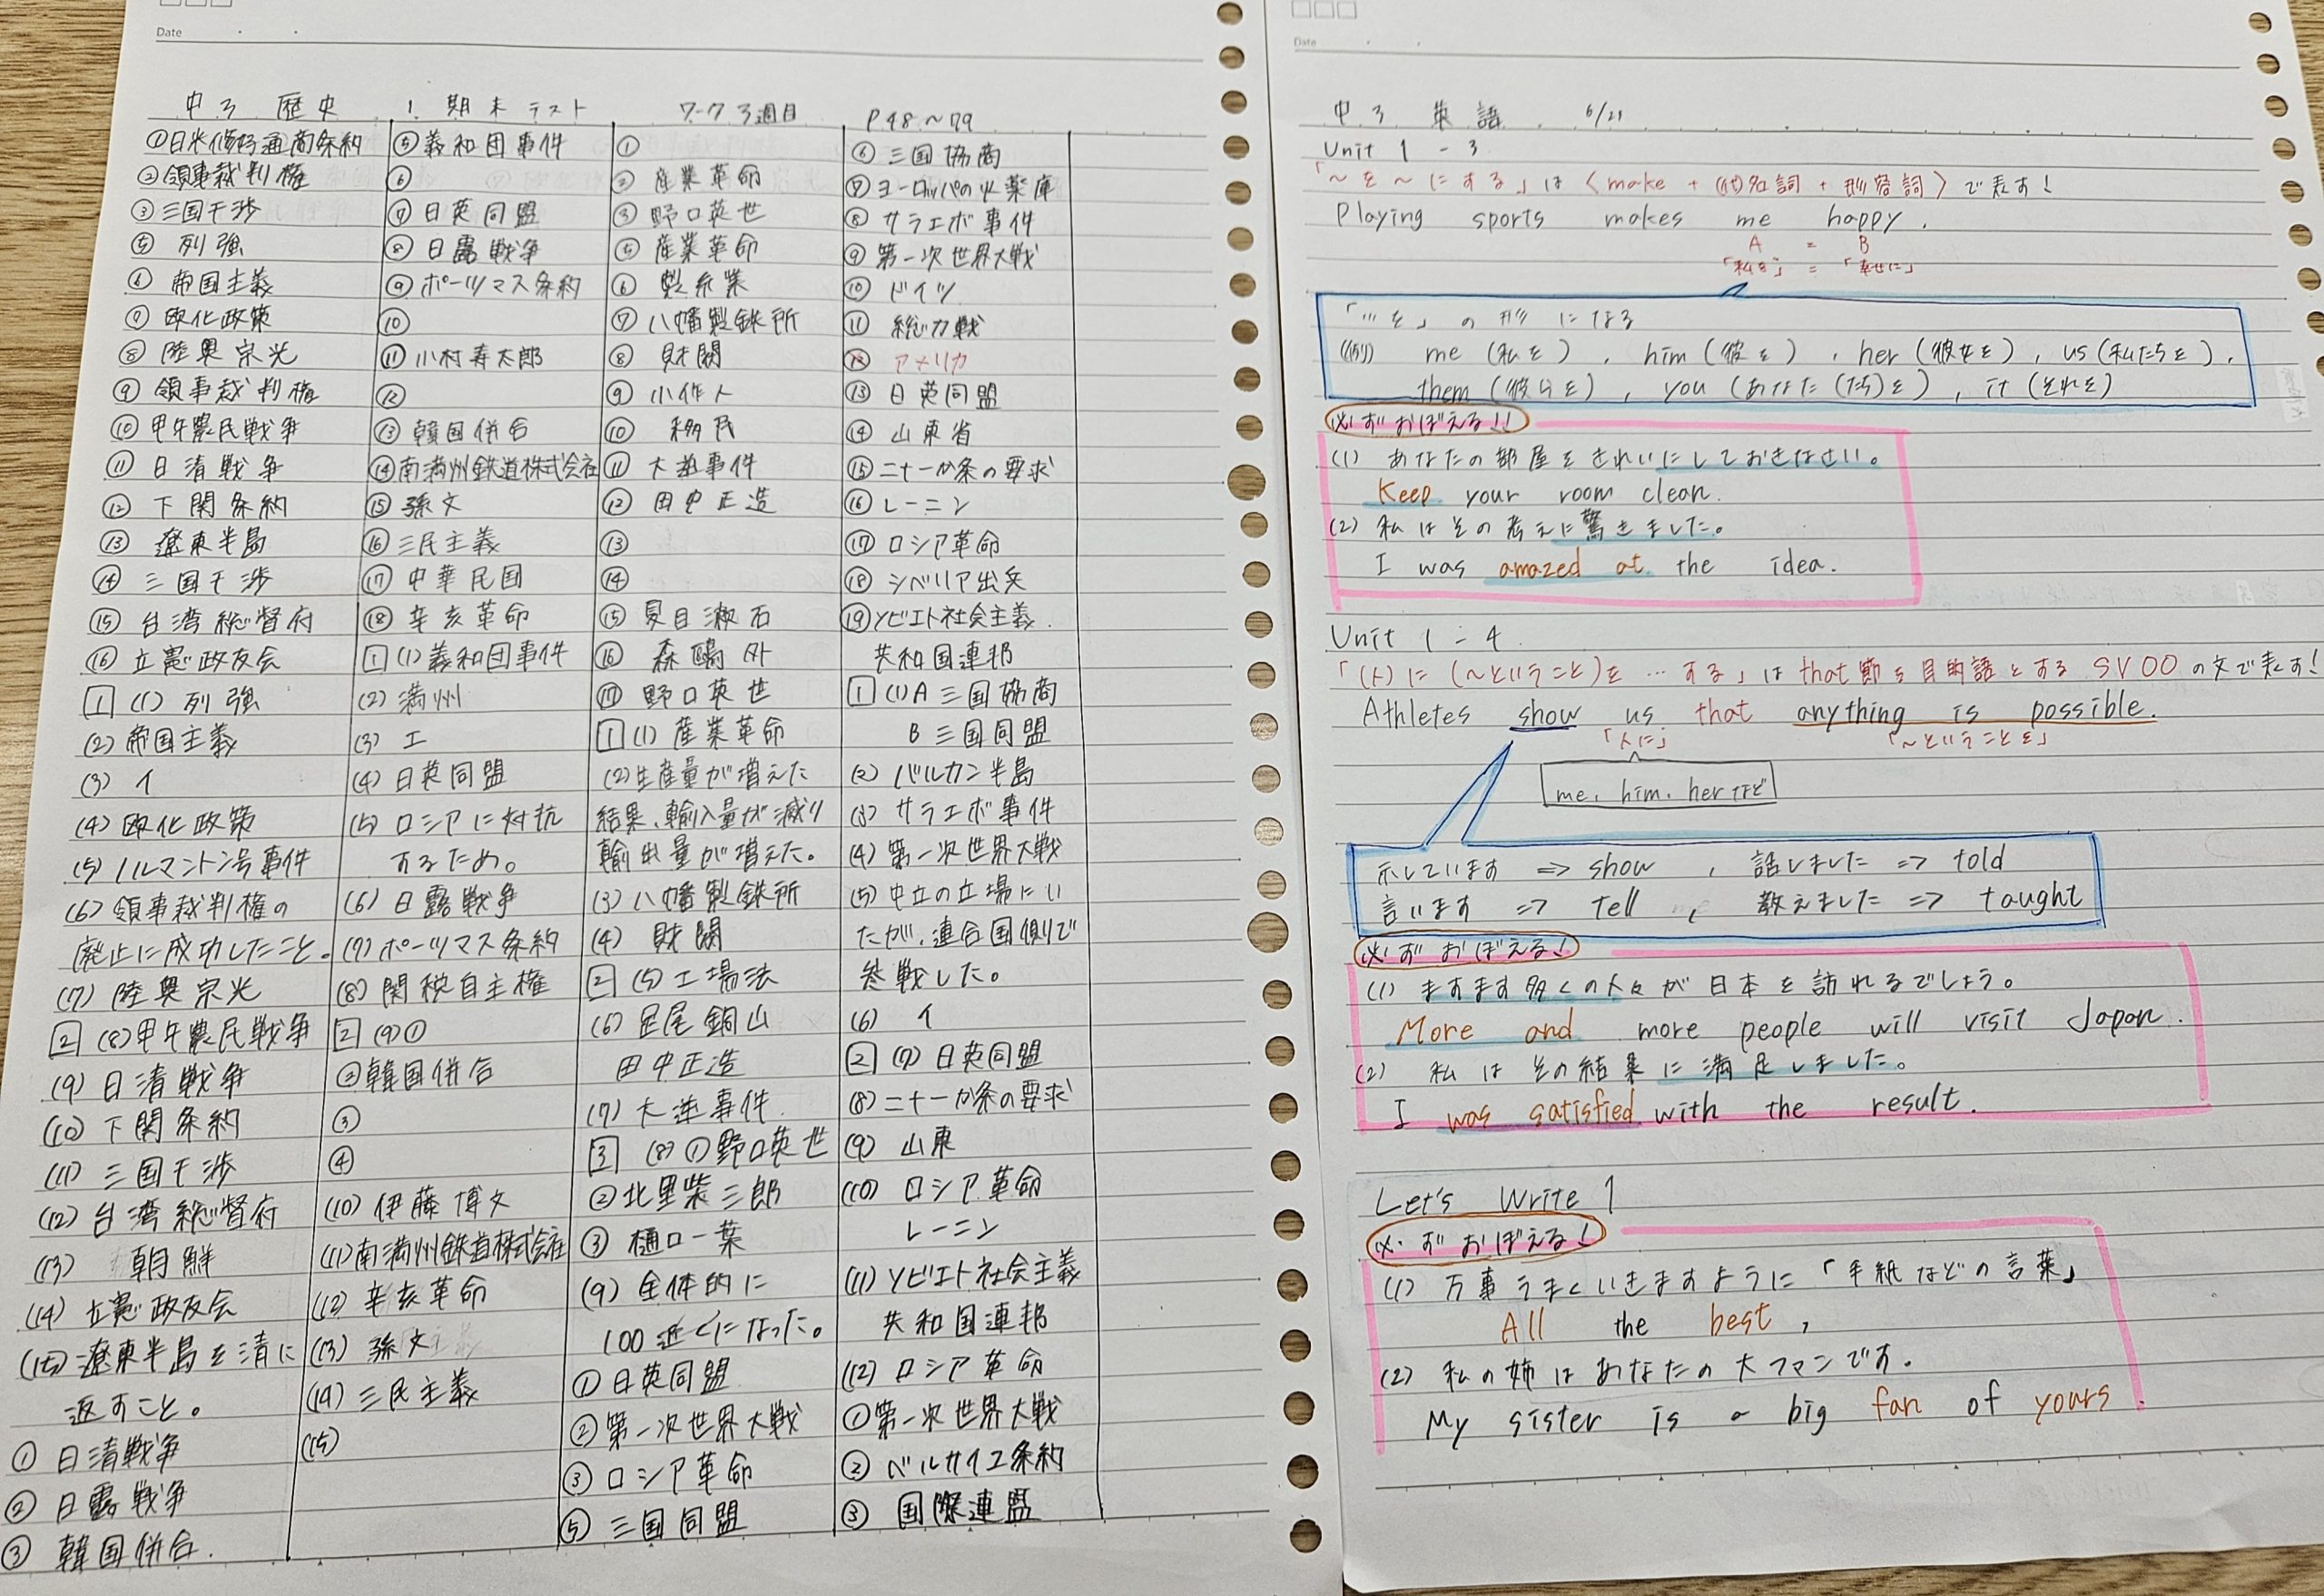 Date
中3 歴史 ! 期末テスト ワーク3週目 P48～79
①日米修好通商条約
②領事裁判権
③三国干渉
⑤列強
⑥帝国主義
⑦欧化政策
⑧陸奥宗光
⑨領事裁判権
⑩甲午農民戦争
⑪日清戦争
⑫下関条約
⑬遼東半島
⑭三国干渉
⑮台湾総督府
⑯立憲政友会
1 (1)列強
(2)帝国主義
(3)イ
(4)欧化政策
(5)ノルマントン号事件
(6)領事裁判権の
廃止に成功したこと。
(7)陸奥宗光
2 (8)甲午農民戦争
(9)日清戦争
(10)下関条約
(11)三国干渉
(12)台湾総督府
(13)朝鮮
(14)立憲政友会
(15)遼東半島を清に
返すこと。
①日清戦争
②日露戦争
③韓国併合.
⑤義和団事件
⑥
⑦日英同盟
⑧日露戦争
⑨ポーツマス条約
⑩
⑪小村寿太郎
⑫
⑬韓国併合
⑭南満州鉄道株式会社
⑮孫文
⑯三民主義
⑰中華民国
⑱辛亥革命
1 (1)義和団事件
(2)満州
(3)エ
(4)日英同盟
(5)ロシアに対抗
するため。
(6)日露戦争
(7)ポーツマス条約
(8)関税自主権
2 (9)①
②韓国併合
③
④
(10)伊藤博文
(11)南満州鉄道株式会社
(12)辛亥革命
(13)孫文
(14)三民主義
(15)
①
②産業革命
③野口英世
⑤産業革命
⑥製糸業
⑦八幡製鉄所
⑧財閥
⑨小作人
⑩移民
⑪大逆事件
⑫田中正造
⑬
⑭
⑮夏目漱石
⑯森鷗外
⑰野口英世
1 (1)産業革命
(2)生産量が増えた
結果、輸入量が減り
輸出量が増えた。
(3)八幡製鉄所
(4)財閥
2 (5)工場法
(6)足尾銅山
田中正造
(7)大逆事件
3 (8)①野口英世
②北里柴三郎
③樋口一葉
(9)全体的に
100近くになった。
①日英同盟
②第一次世界大戦
③ロシア革命
⑤三国同盟
⑥三国協商
⑦ヨーロッパの火薬庫
⑧サラエボ事件
⑨第一次世界大戦
⑩ドイツ
⑪総力戦
⑫アメリカ
⑬日英同盟
⑭山東省
⑮二十一か条の要求
⑯レーニン
⑰ロシア革命
⑱シベリア出兵
⑲ソビエト社会主義
共和国連邦
1 (1)A三国協商
B三国同盟
(2)バルカン半島
(3)サラエボ事件
(4)第一次世界大戦
(5)中立の立場にい
たが、連合国側で
参戦した。
(6)イ
2 (7)日英同盟
(8)二十一か条の要求
(9)山東
(10)ロシア革命
レーニン
(11)ソビエト社会主義
共和国連邦
(12)ロシア革命
①第一次世界大戦
②ベルサイユ条約
③国際連盟
Date
中3 英語 6/21
Unit 1 - 3
「～を～にする」は〈make + (代)名詞 + 形容詞〉で表す!
Playing sports makes me happy.
A = B
「私を」 = 「幸せに」
「…を」の形になる
(例) me (私を), him (彼を), her (彼女を), us (私たちを),
them (彼らを), you (あなた(たち)を), it (それを)
必ずおぼえる!!
(1) あなたの部屋をきれいにしておきなさい。
Keep your room clean.
(2) 私はその考えに驚きました。
I was amazed at the idea.
Unit 1 - 4
「(人)に(～ということ)を…する」はthat節を目的語とするSVOOの文で表す!
Athletes show us that anything is possible.
「人に」 「～ということを」
me, him, herなど
示しています => show, 話しました => told
言います => tell, 教えました => taught
必ずおぼえる!
(1) ますます多くの人々が日本を訪れるでしょう。
More and more people will visit Japan.
(2) 私はその結果に満足しました。
I was satisfied with the result.
Let's Write 1
必ずおぼえる!
(1) 万事うまくいきますように「手紙などの言葉」
All the best,
(2) 私の姉はあなたの大ファンです。
My sister is a big fan of yours.